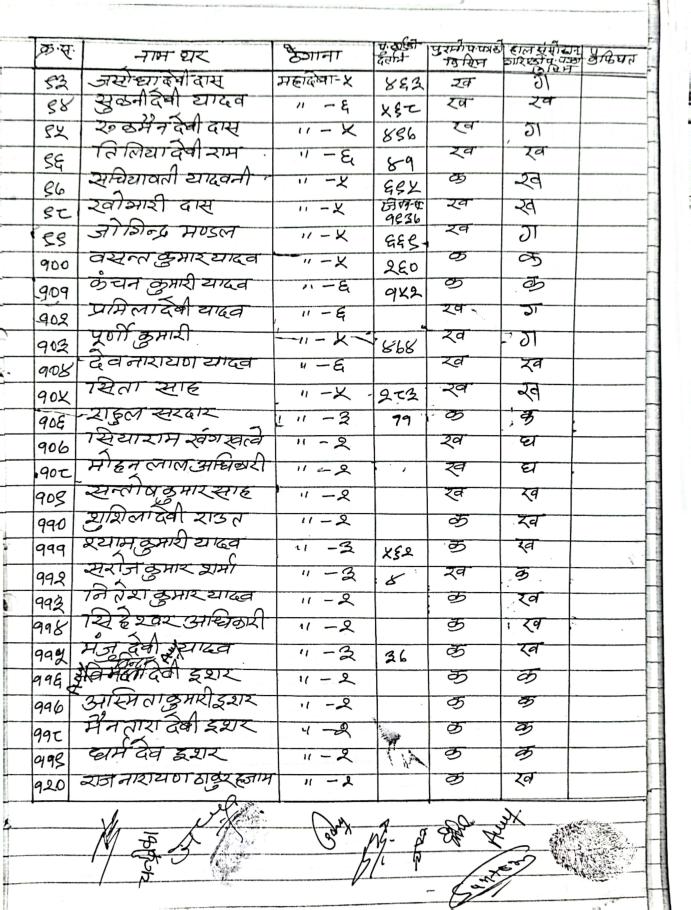 क्र.सं. नाम थर ठेगाना प.का.नं दर्ता पुरानो प.कार्ड विवरण हाल संशोधन कैफियत
९३ जसोधा देवी दास महादेवा-५ ४६३ ख ग
९४ सुठनी देवी यादव " -६ ५६८ ख ख
९५ रुकमैन देवी दास " -५ ४९६ ख ग
९६ तिलिया देवी राम " -६ ४१ ख ख
९७ सचियावती यादवनी " -५ ६९५ क ख
९८ खोभारी दास " -५ १९३७ ख ख
९९ जोगिन्द्र मण्डल " -५ ६६९ ख ग
१०० वसन्त कुमार यादव " -५ २६० क क
१०१ कंचन कुमारी यादव " -६ १५२ क क
१०२ प्रमिला देवी यादव " -६ ख ग
१०३ पूर्णी कुमारी " -५ ४७४ ख ग
१०४ देव नारायण यादव " -६ ख ख
१०५ सिता साह " -५ २८३ ख ख
१०६ राहुल सरदार " -३ ११ क क
१०७ सियाराम खंग खत्वे " -२ ख घ
१०८ मोहन लाल अधिकारी " -२ ख घ
१०९ सन्तोष कुमार साह " -२ ख ख
११० शुशिला देवी राउत " -२ क ख
१११ श्याम कुमारी यादव " -३ ५६२ क ख
११२ सरोज कुमार शर्मा " -३ ४ ख क
११३ नितेश कुमार यादव " -२ क ख
११४ सिंहेश्वर अधिकारी " -२ क ख
११५ मंजु देवी यादव " -३ ३७ क ख
११६ विमला देवी इशर " -२ क क
११७ अस्मिता कुमारी इशर " -२ क क
११८ मैनतारा देवी इशर " -२ क क
११९ धर्मदेव इशर " -२ क क
१२० राज नारायण ठाकुर हजाम " -२ क ख
चन्द्रिका
Santosh